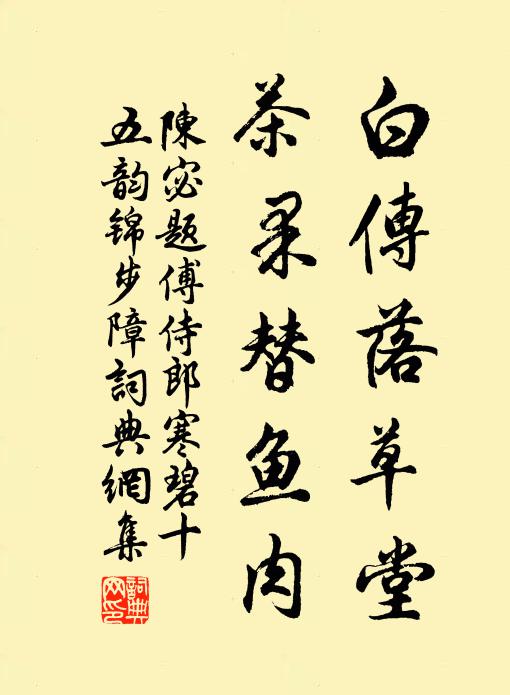 白傅落草堂
茶果替鱼肉
陳宓題傅侍郎寒碧十
五韵锦步障詞典網集
詞典网印